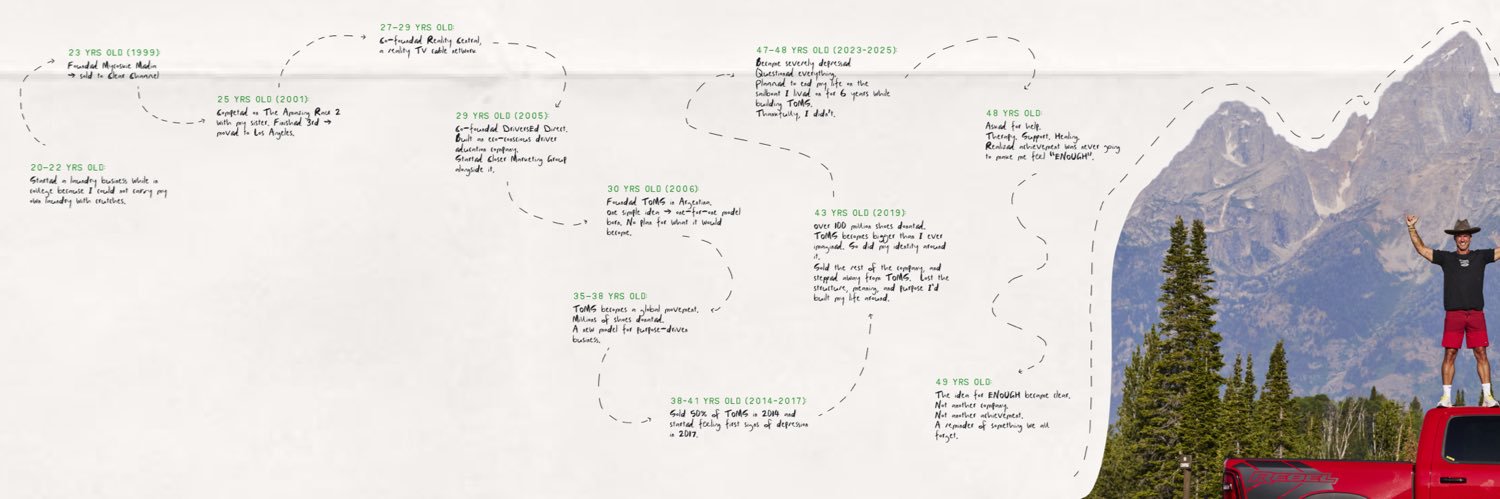 20-22 YRS OLD:
Started a laundry business while in
college because I could not carry my
own laundry with crutches.
23 YRS OLD (1999):
Founded Mycoskie Media
→ sold to Clear Channel
25 YRS OLD (2001):
Competed on The Amazing Race 2
with my sister. Finished 3rd →
moved to Los Angeles.
27-29 YRS OLD:
Co-founded Reality Central,
a reality TV cable network.
29 YRS OLD (2005):
Co-founded DriversEd Direct.
Built an eco-conscious driver
education company.
Started Closer Marketing Group
alongside it.
30 YRS OLD (2006):
Founded TOMS in Argentina.
One simple idea → one-for-one model
born. No plan for what it would
become.
35-38 YRS OLD:
TOMS becomes a global movement.
Millions of shoes donated.
A new model for purpose-driven
business.
38-41 YRS OLD (2014-2017):
Sold 50% of TOMS in 2014 and
started feeling first signs of depression
in 2017.
43 YRS OLD (2019):
Over 100 million shoes donated.
TOMS becomes bigger than I ever
imagined. So did my identity around
it.
Sold the rest of the company, and
stepped away from TOMS. Lost the
structure, meaning, and purpose I'd
built my life around.
47-48 YRS OLD (2023-2025):
Became severely depressed
Questioned everything.
Planned to end my life on the
sailboat I lived on for 6 years while
building TOMS.
Thankfully, I didn't.
48 YRS OLD:
Asked for help.
Therapy. Support. Healing.
Realized achievement was never going
to make me feel "ENOUGH".
49 YRS OLD:
The idea for ENOUGH became clear.
Not another company.
Not another achievement.
A reminder of something we all
forget.
REBEL